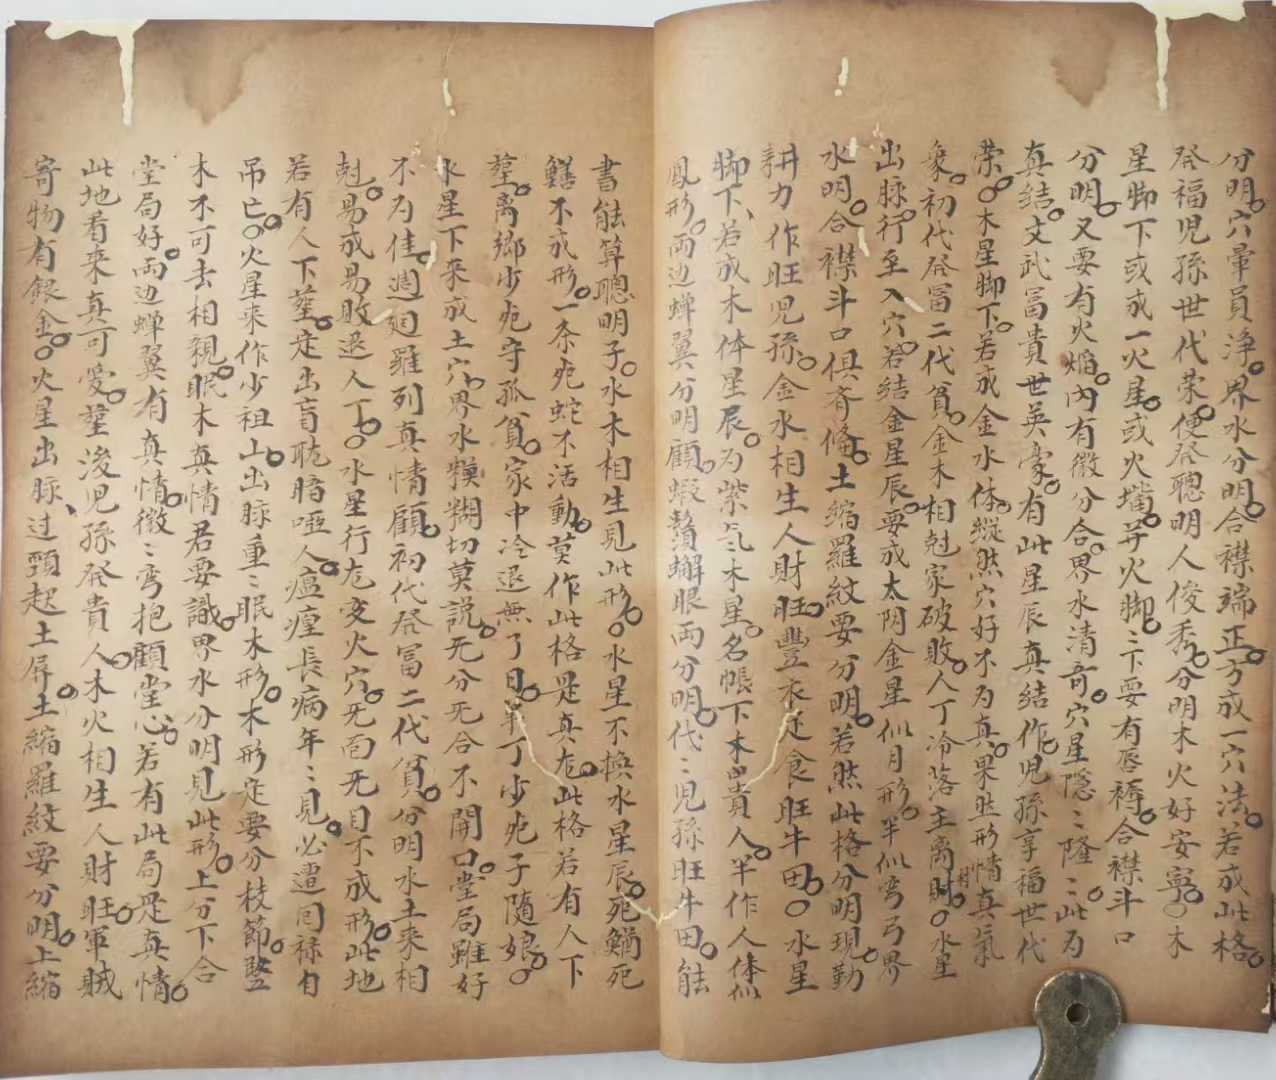 分明。穴暈員浄。界水分明。合襟端正。方成一穴法。若成此格。
発福児孫世代荣。便発聰明人俊秀。分明木火好安寧。○木
星脚下或成一火星。或火嘴并火脚。〻下要有唇褥。合襟斗口
分明。又要有火焔。内有微分合。界水清奇。穴星隐〻隆〻。此为
真结。文武冨貴世英豪。有此星辰真结作。児孫享福世代
荣。○木星脚下。若成金水体。縱然穴好不为真。果然形情真氣
象。初代発冨二代貧。金木相尅家破敗。人丁冷落主離財。○水星
出脉。行至入穴。若结金星辰。要成太阴金星似月形。半似弯弓界
水明。合襟斗口俱斉俻。土縮羅紋要分明。若然此格分明現。勤
耕力作旺児孫。金水相生人財旺。豐衣足食旺牛田。○水星
脚下、若成木体星辰。为紫气木星。名帳下木貴人。半作人体似
鳳形。両边蝉翼分明顧。蝦鬚蠏眼両分明。代〻児孫旺牛田。能
書能算聰明子。水木相生見此形。○水星不換水星辰。死鰤死
鱔不成形。一条死蛇不活動。莫作此格是真龙。此格若有人下
𦵏。离郷少死守孤貧。家中冷退無了日。单丁少死子随娘。○
水星下来成土穴。界水糢糊切莫説。无分无合不開口。堂局雖好
不为佳。週廻羅列真情顧。初代発冨二代貧。分明水土来相
尅。易成易敗退人丁。○水星行龙变火穴。无面无目不成形。此地
若有人下𦵏。定出盲聋暗啞人。瘟瘟長病年〻見。必遭囬禄自
吊亡。○火星来作少祖山。出脉重〻眠木形。木形定要分枝節。竪
木不可去相親。眠木真情君要識。界水分明見此形。上分下合
堂局好。両边蝉翼有真情。微〻弯抱顧堂心。若有此局是真情
此地看来真可爱。𦵏後児孫発貴人。木火相生人財旺。軍賊
寄物有銀金。○火星出脉、过頸起土屏。土縮羅紋要分明。上縮